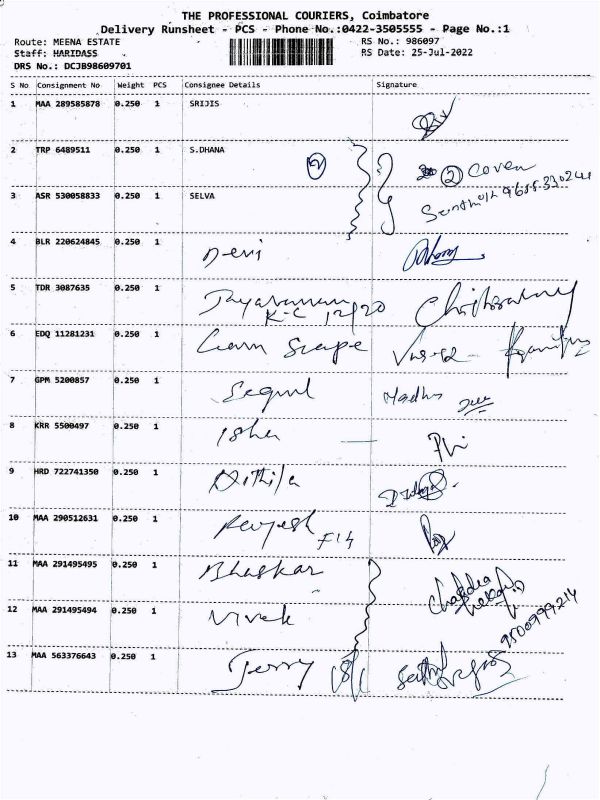 THE PROFESSIONAL COURIERS, Coimbatore
Delivery Runsheet - PCS - Phone No.:0422-3505555 - Page No.:1
Route: MEENA ESTATE RS No.: 986097
Staff: HARIDASS RS Date: 25-Jul-2022
DRS No.: DCJB98609701
S No Consignment No Weight PCS Consignee Details Signature
1 MAA 289585878 0.250 1 SRIJIS
2 TRP 6489511 0.250 1 S.DHANA 2 5 Cover
3 ASR 530058833 0.250 1 SELVA
4 BLR 220624845 0.250 1 Devi
5 TDR 3087635 0.250 1 Jayaraman
K-C 12/20
6 EDQ 11281231 0.250 1
7 GPM 5200857 0.250 1 Madhu
8 KRR 5500497 0.250 1 Isha
9 HRD 722741350 0.250 1 Dithila
10 MAA 290512631 0.250 1 F14
11 MAA 291495495 0.250 1 Bhaskar
12 MAA 291495494 0.250 1 Vivek 9500999214
13 MAA 563376643 0.250 1 Jerry